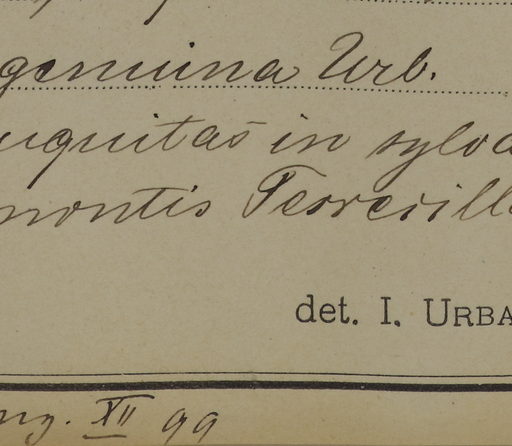 genuina Urb.
uquitas in sylva
montis
det. I. URBA
XII 99